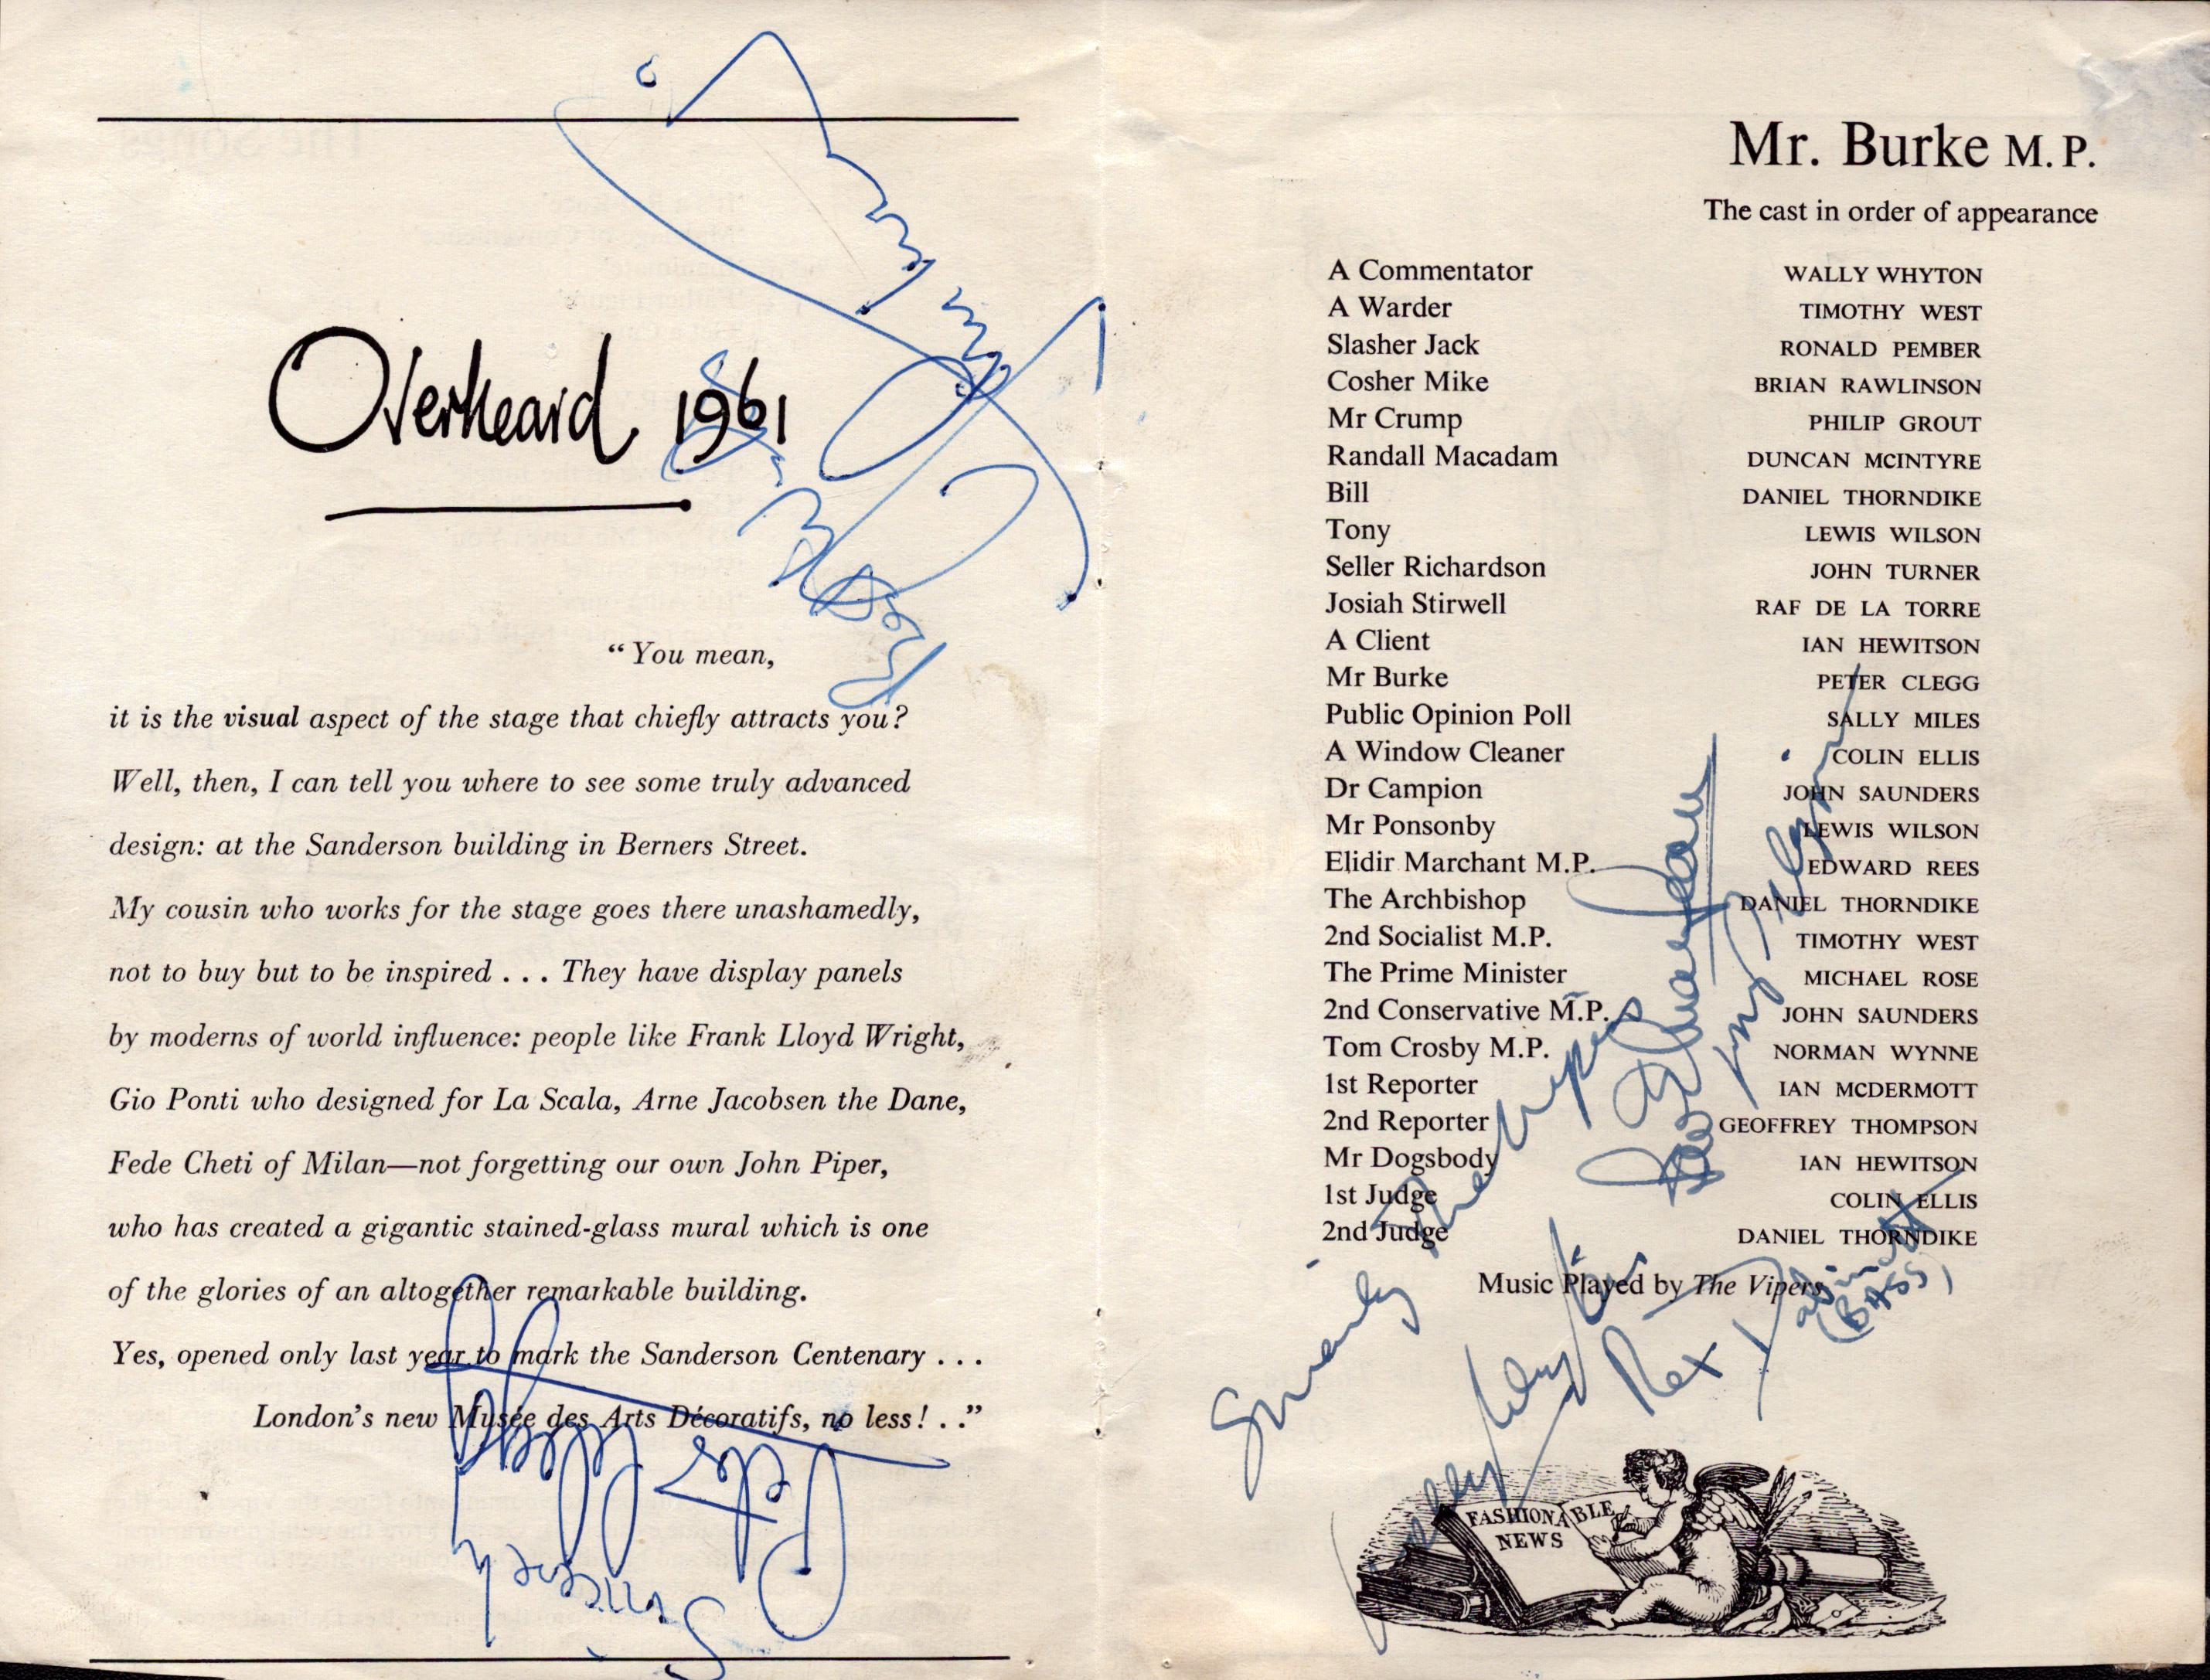 Overheard 1961
“You mean,
it is the visual aspect of the stage that chiefly attracts you?
Well, then, I can tell you where to see some truly advanced
design: at the Sanderson building in Berners Street.
My cousin who works for the stage goes there unashamedly,
not to buy but to be inspired . . . They have display panels
by moderns of world influence: people like Frank Lloyd Wright,
Gio Ponti who designed for La Scala, Arne Jacobsen the Dane,
Fede Cheti of Milan—not forgetting our own John Piper,
who has created a gigantic stained-glass mural which is one
of the glories of an altogether remarkable building.
Yes, opened only last year to mark the Sanderson Centenary . . .
London’s new Musée des Arts Décoratifs, no less! . .”
Sincerely
Mr. Burke M.P.
The cast in order of appearance
A Commentator WALLY WHYTON
A Warder TIMOTHY WEST
Slasher Jack RONALD PEMBER
Cosher Mike BRIAN RAWLINSON
Mr Crump PHILIP GROUT
Randall Macadam DUNCAN MCINTYRE
Bill DANIEL THORNDIKE
Tony LEWIS WILSON
Seller Richardson JOHN TURNER
Josiah Stirwell RAF DE LA TORRE
A Client IAN HEWITSON
Mr Burke PETER CLEGG
Public Opinion Poll SALLY MILES
A Window Cleaner COLIN ELLIS
Dr Campion JOHN SAUNDERS
Mr Ponsonby LEWIS WILSON
Elidir Marchant M.P. EDWARD REES
The Archbishop DANIEL THORNDIKE
2nd Socialist M.P. TIMOTHY WEST
The Prime Minister MICHAEL ROSE
2nd Conservative M.P. JOHN SAUNDERS
Tom Crosby M.P. NORMAN WYNNE
1st Reporter IAN MCDERMOTT
2nd Reporter GEOFFREY THOMPSON
Mr Dogsbody IAN HEWITSON
1st Judge COLIN ELLIS
2nd Judge DANIEL THORNDIKE
Music Played by The Vipers
Sincerely The Vipers
Wally Whyton
Rex
(BASS)
FASHIONABLE
NEWS